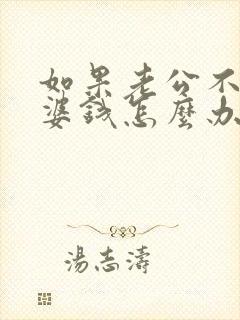 如果老公不
婆錢怎麼办
湯志濤